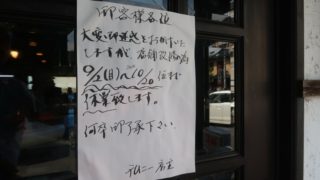 御客様各位
大変御迷惑をお掛けいた
しますが、店舗改装の為
9/2(日)〜10/20位まで
休業致します。
何卒御了承下さい。
店主